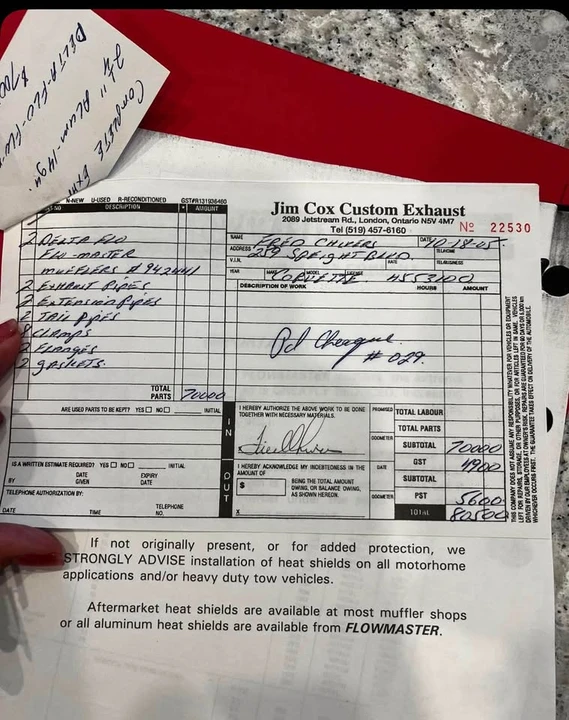 COMPLETE
2½" ALUM-14ga.
DELTA-FLO-FLOW
$700
N-NEW U-USED R-RECONDITIONED GST#R131936460
DESCRIPTION AMOUNT
Jim Cox Custom Exhaust
2089 Jetstream Rd., London, Ontario N5V 4M7
Tel (519) 457-6160
No 22530
NAME FRED CHIVERS DATE 10-18-05
ADDRESS 259 SPEIGHT BLVD. TELEPHONE
V.I.N. RATE TEL/BUSINESS
YEAR MAKE MODEL LICENSE
CORVETTE
DESCRIPTION OF WORK HOURS AMOUNT
2 DELTA FLO
FLO-MASTER
MUFFLERS # 942441
2 EXHAUST PIPES
2 EXTENSION PIPES
2 TAIL PIPES
8 CLAMPS
2 FLANGES
2 GASKETS.
Pd Cheque.
# 029.
TOTAL PARTS 70000
ARE USED PARTS TO BE KEPT? YES NO INITIAL
IS A WRITTEN ESTIMATE REQUIRED? YES NO INITIAL
BY DATE GIVEN EXPIRY DATE
TELEPHONE AUTHORIZATION BY:
DATE TIME TELEPHONE NO.
IN
I HEREBY AUTHORIZE THE ABOVE WORK TO BE DONE
TOGETHER WITH NECESSARY MATERIALS.
OUT
I HEREBY ACKNOWLEDGE MY INDEBTEDNESS IN THE
AMOUNT OF
$ BEING THE TOTAL AMOUNT
OWING, OR BALANCE OWING,
AS SHOWN HEREON.
X
PROMISED
ODOMETER
DATE
ODOMETER
TOTAL LABOUR
TOTAL PARTS
SUBTOTAL 70000
GST 4900
SUBTOTAL
PST 5600
TOTAL 80500
THIS COMPANY DOES NOT ASSUME ANY RESPONSIBILITY WHATEVER FOR VEHICLES OR EQUIPMENT
LEFT FOR REPAIRS, STORAGE, OR OTHER PURPOSES, OR FOR ARTICLES LEFT IN SAME. VEHICLES
DRIVEN BY OUR EMPLOYEES AT OWNER'S RISK. REPAIRS ARE GUARANTEED FOR 90 DAYS OR 6,000 km
WHICHEVER OCCURS FIRST. THE GUARANTEE TAKES EFFECT ON DELIVERY OF THE AUTOMOBILE.
If not originally present, or for added protection, we
STRONGLY ADVISE installation of heat shields on all motorhome
applications and/or heavy duty tow vehicles.
Aftermarket heat shields are available at most muffler shops
or all aluminum heat shields are available from FLOWMASTER.